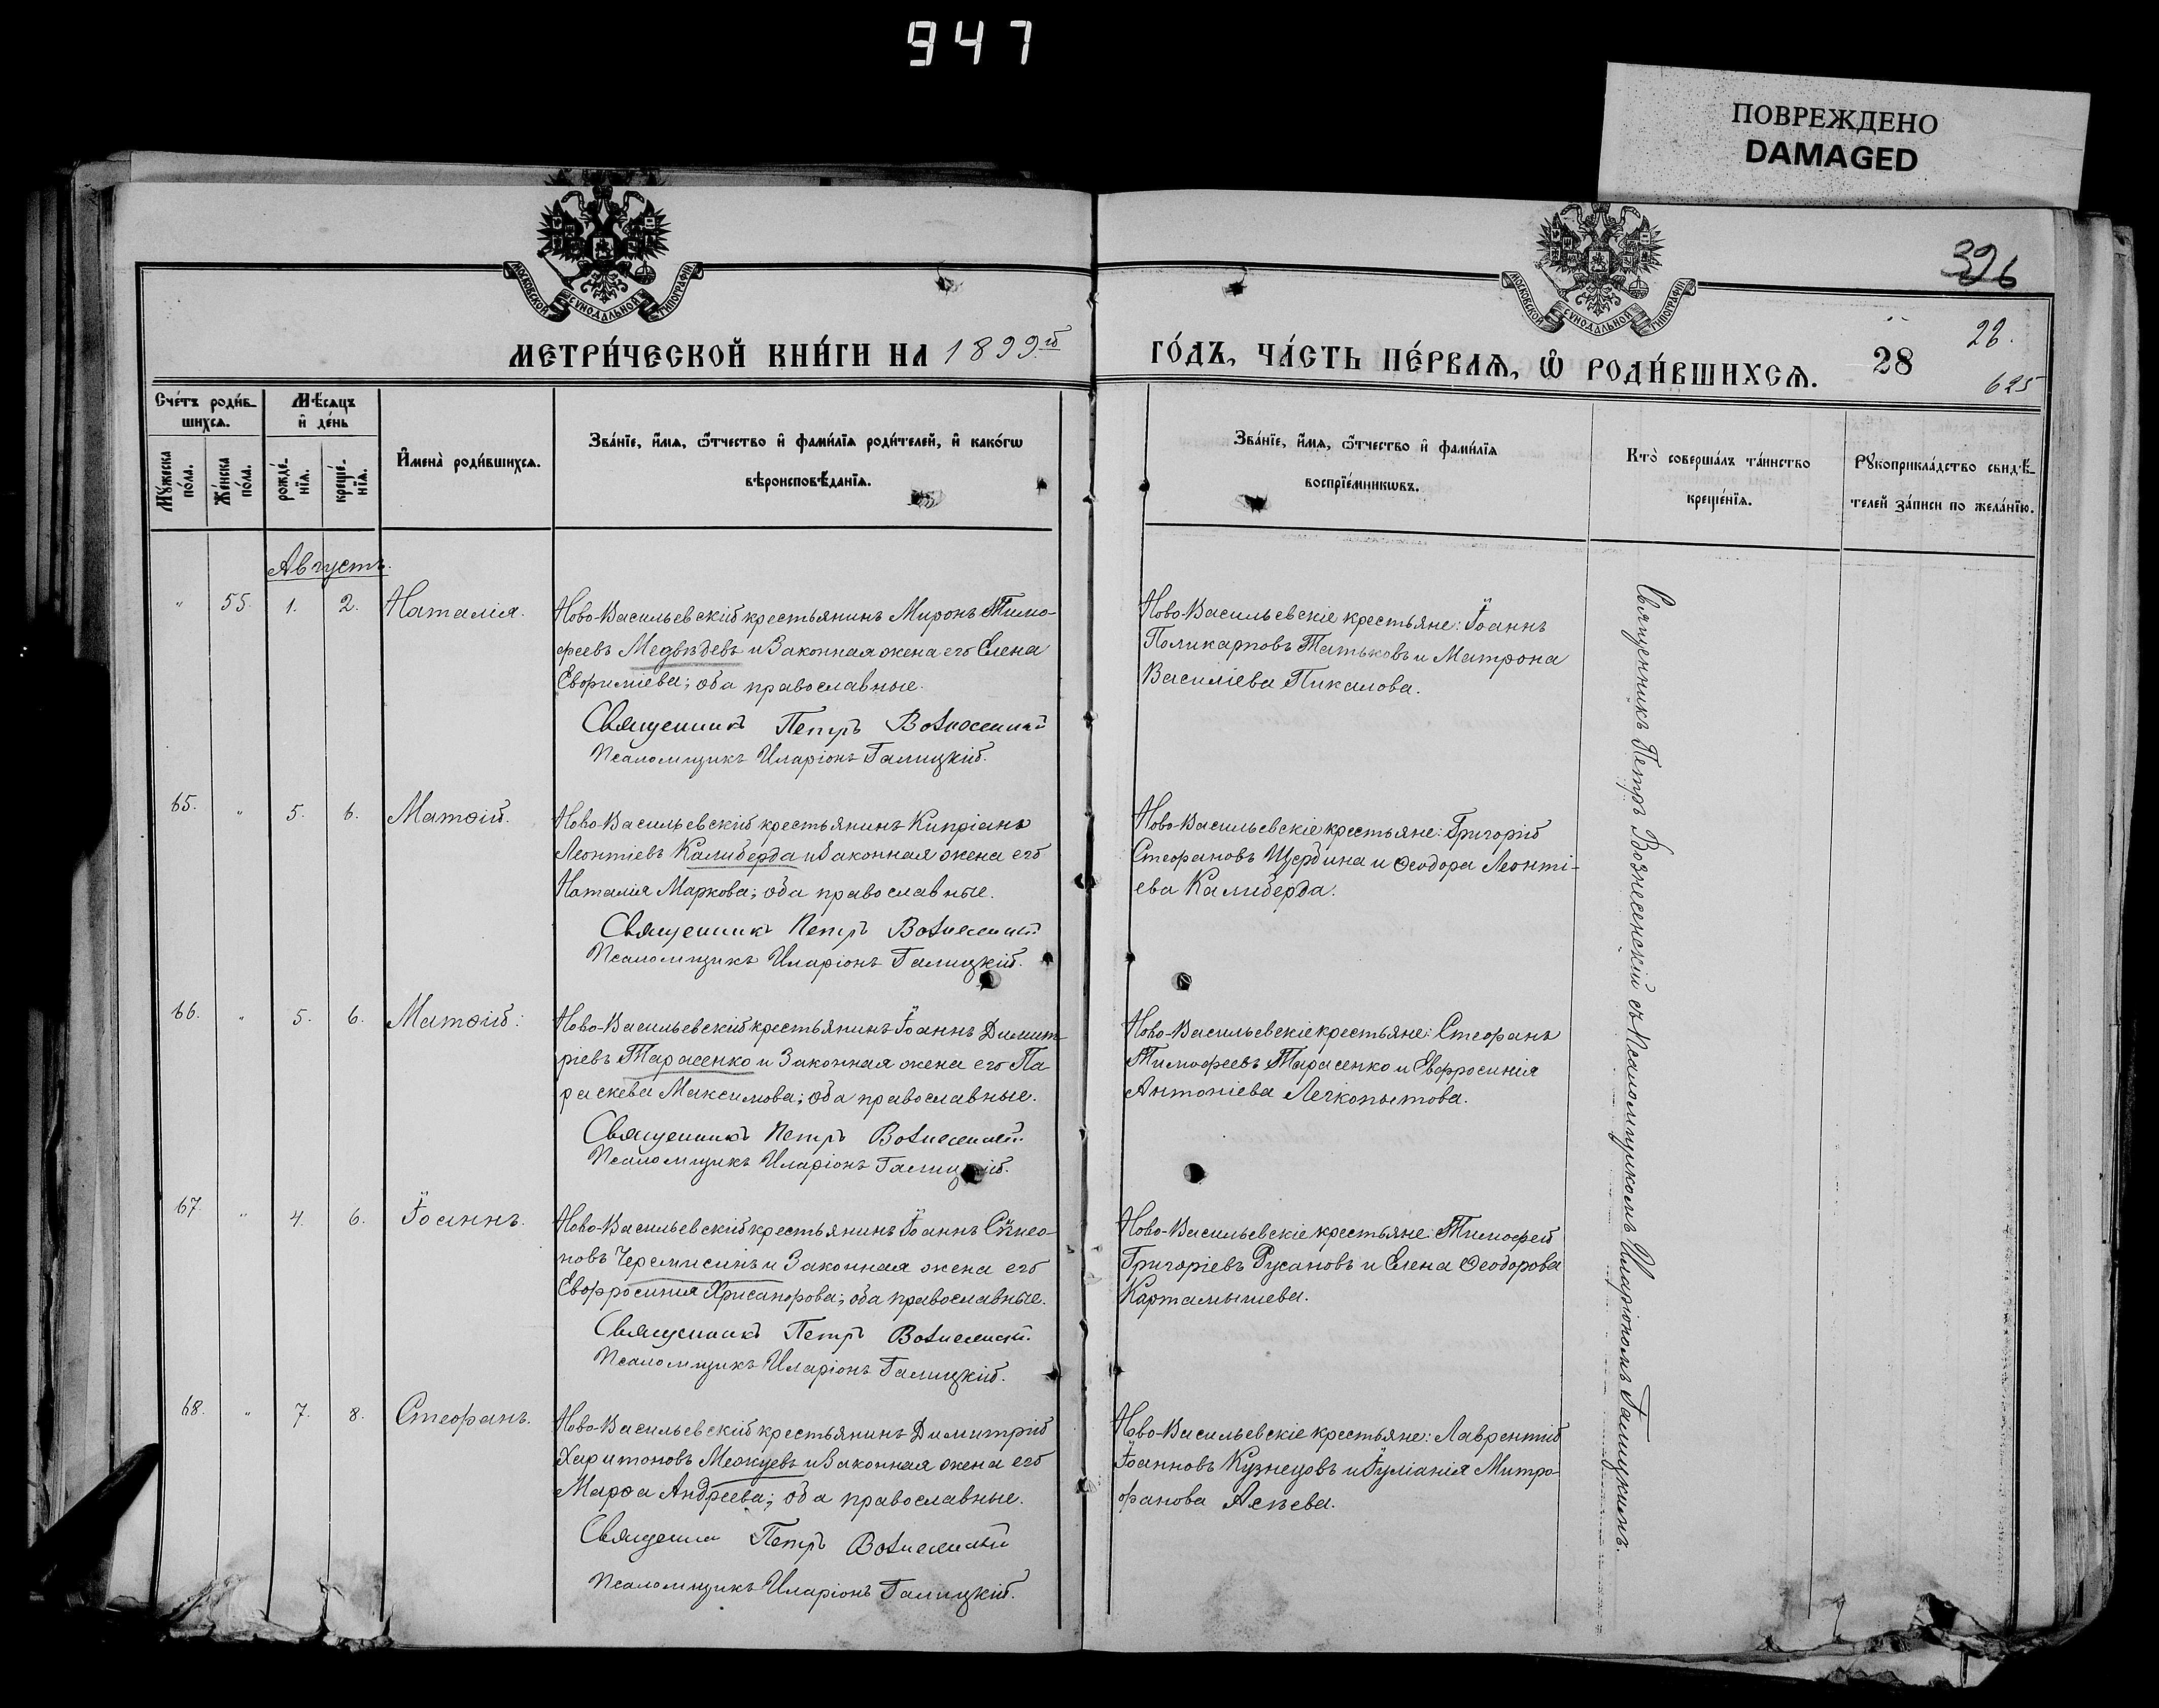 947
ПОВРЕЖДЕНО
DAMAGED
396
МОСКОВСКОЙ СУНОДАЛЬНОЙ ТИПОГРАФІИ
МОСКОВСКОЙ СУНОДАЛЬНОЙ ТИПОГРАФІИ
МЕТРИ́ЧЕСКОЙ КНИ́ГИ НА 1899й
ГО́ДЪ, ЧА́СТЬ ПЕ́РВАѦ, Ѽ РОДИ́ВШИХСѦ.
28
625
Сче́тъ роди́в-
шихсѧ.
Мѣ́сѧцъ
и҆ де́нь
Мꙋ́жеска
по́ла.
Же́нска
по́ла.
рожде́-
нїѧ.
креще́-
нїѧ.
И҆мена̀ роди́вшихсѧ.
Зва́нїе, и҆́мѧ, ѻ҆́тчество и҆ фами́лїѧ роди́телей, и҆ како́гѡ
вѣроисповѣ́данїѧ.
Зва́нїе, и҆́мѧ, ѻ҆́тчество и҆ фами́лїѧ
воспрїе́мникѡвъ.
Кто̀ соверша́лъ та́инство
креще́нїѧ.
Рꙋкоприкла́дство свидѣ́-
телей за́писи по жела́нїю.
Августъ.
" 55. 1. 2. Наталія.
Ново-Васильевскій крестьянинъ Миронъ Тимо-
феевъ Медвѣдевъ и Законная жена его Елена
Евфиміева; оба православные.
Священникъ Петръ Вознесенскій
Псаломщикъ Иларіонъ Галицкій.
Ново-Васильевскіе крестьяне: Іоаннъ
Поликарповъ Татьковъ и Матрона
Василіева Пикалова.
Священникъ Петръ Вознесенскій съ Псаломщикомъ Иларіономъ Галицкимъ.
65. " 5. 6. Матѳій.
Ново-Васильевскій крестьянинъ Кипріанъ
Леонтіевъ Калиберда и Законная жена его
Наталия Маркова; оба православные.
Священникъ Петръ Вознесенскій
Псаломщикъ Иларіонъ Галицкій.
Ново-Васильевскіе крестьяне: Григорій
Стефановъ Щербина и Ѳеодора Леонті-
ева Калиберда.
66. " 5. 6. Матѳій.
Ново-Васильевскій крестьянинъ Іоаннъ Димит-
ріевъ Тарасенко и Законная жена его Па
раскева Максимова; оба православные.
Священникъ Петръ Вознесенскій
Псаломщикъ Иларіонъ Галицкій.
Ново-Васильевскіе крестьяне: Стефанъ
Тимофеевъ Тарасенко и Евфросинія
Антоніева Легкопытова.
67. " 4. 6. Іоаннъ.
Ново-Васильевскій крестьянинъ Іоаннъ Сѵмео-
новъ Черемисинъ и Законная жена его
Евфросинія Хрисанфова; оба православные.
Священникъ Петръ Вознесенскій
Псаломщикъ Иларіонъ Галицкій.
Ново-Васильевскіе крестьяне: Тимофей
Григоріевъ Русановъ и Елена Ѳеодорова
Картамышева.
68. " 7. 8. Стефанъ.
Ново-Васильевскій крестьянинъ Димитрій
Харитоновъ и Законная жена его
Марѳа Андреева; оба православные.
Петръ Вознесенскій
Псаломщикъ Иларіонъ Галицкій.
Ново-Васильевскіе крестьяне: Лаврентій
Іоанновъ Кузнецовъ и Іуліанія Митро-
фанова